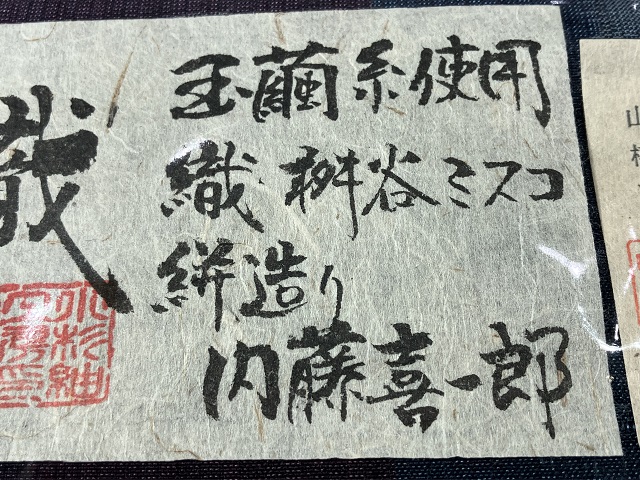 玉繭糸使用
織 桝谷ミスコ
絣造り
内藤喜一郎
織
山